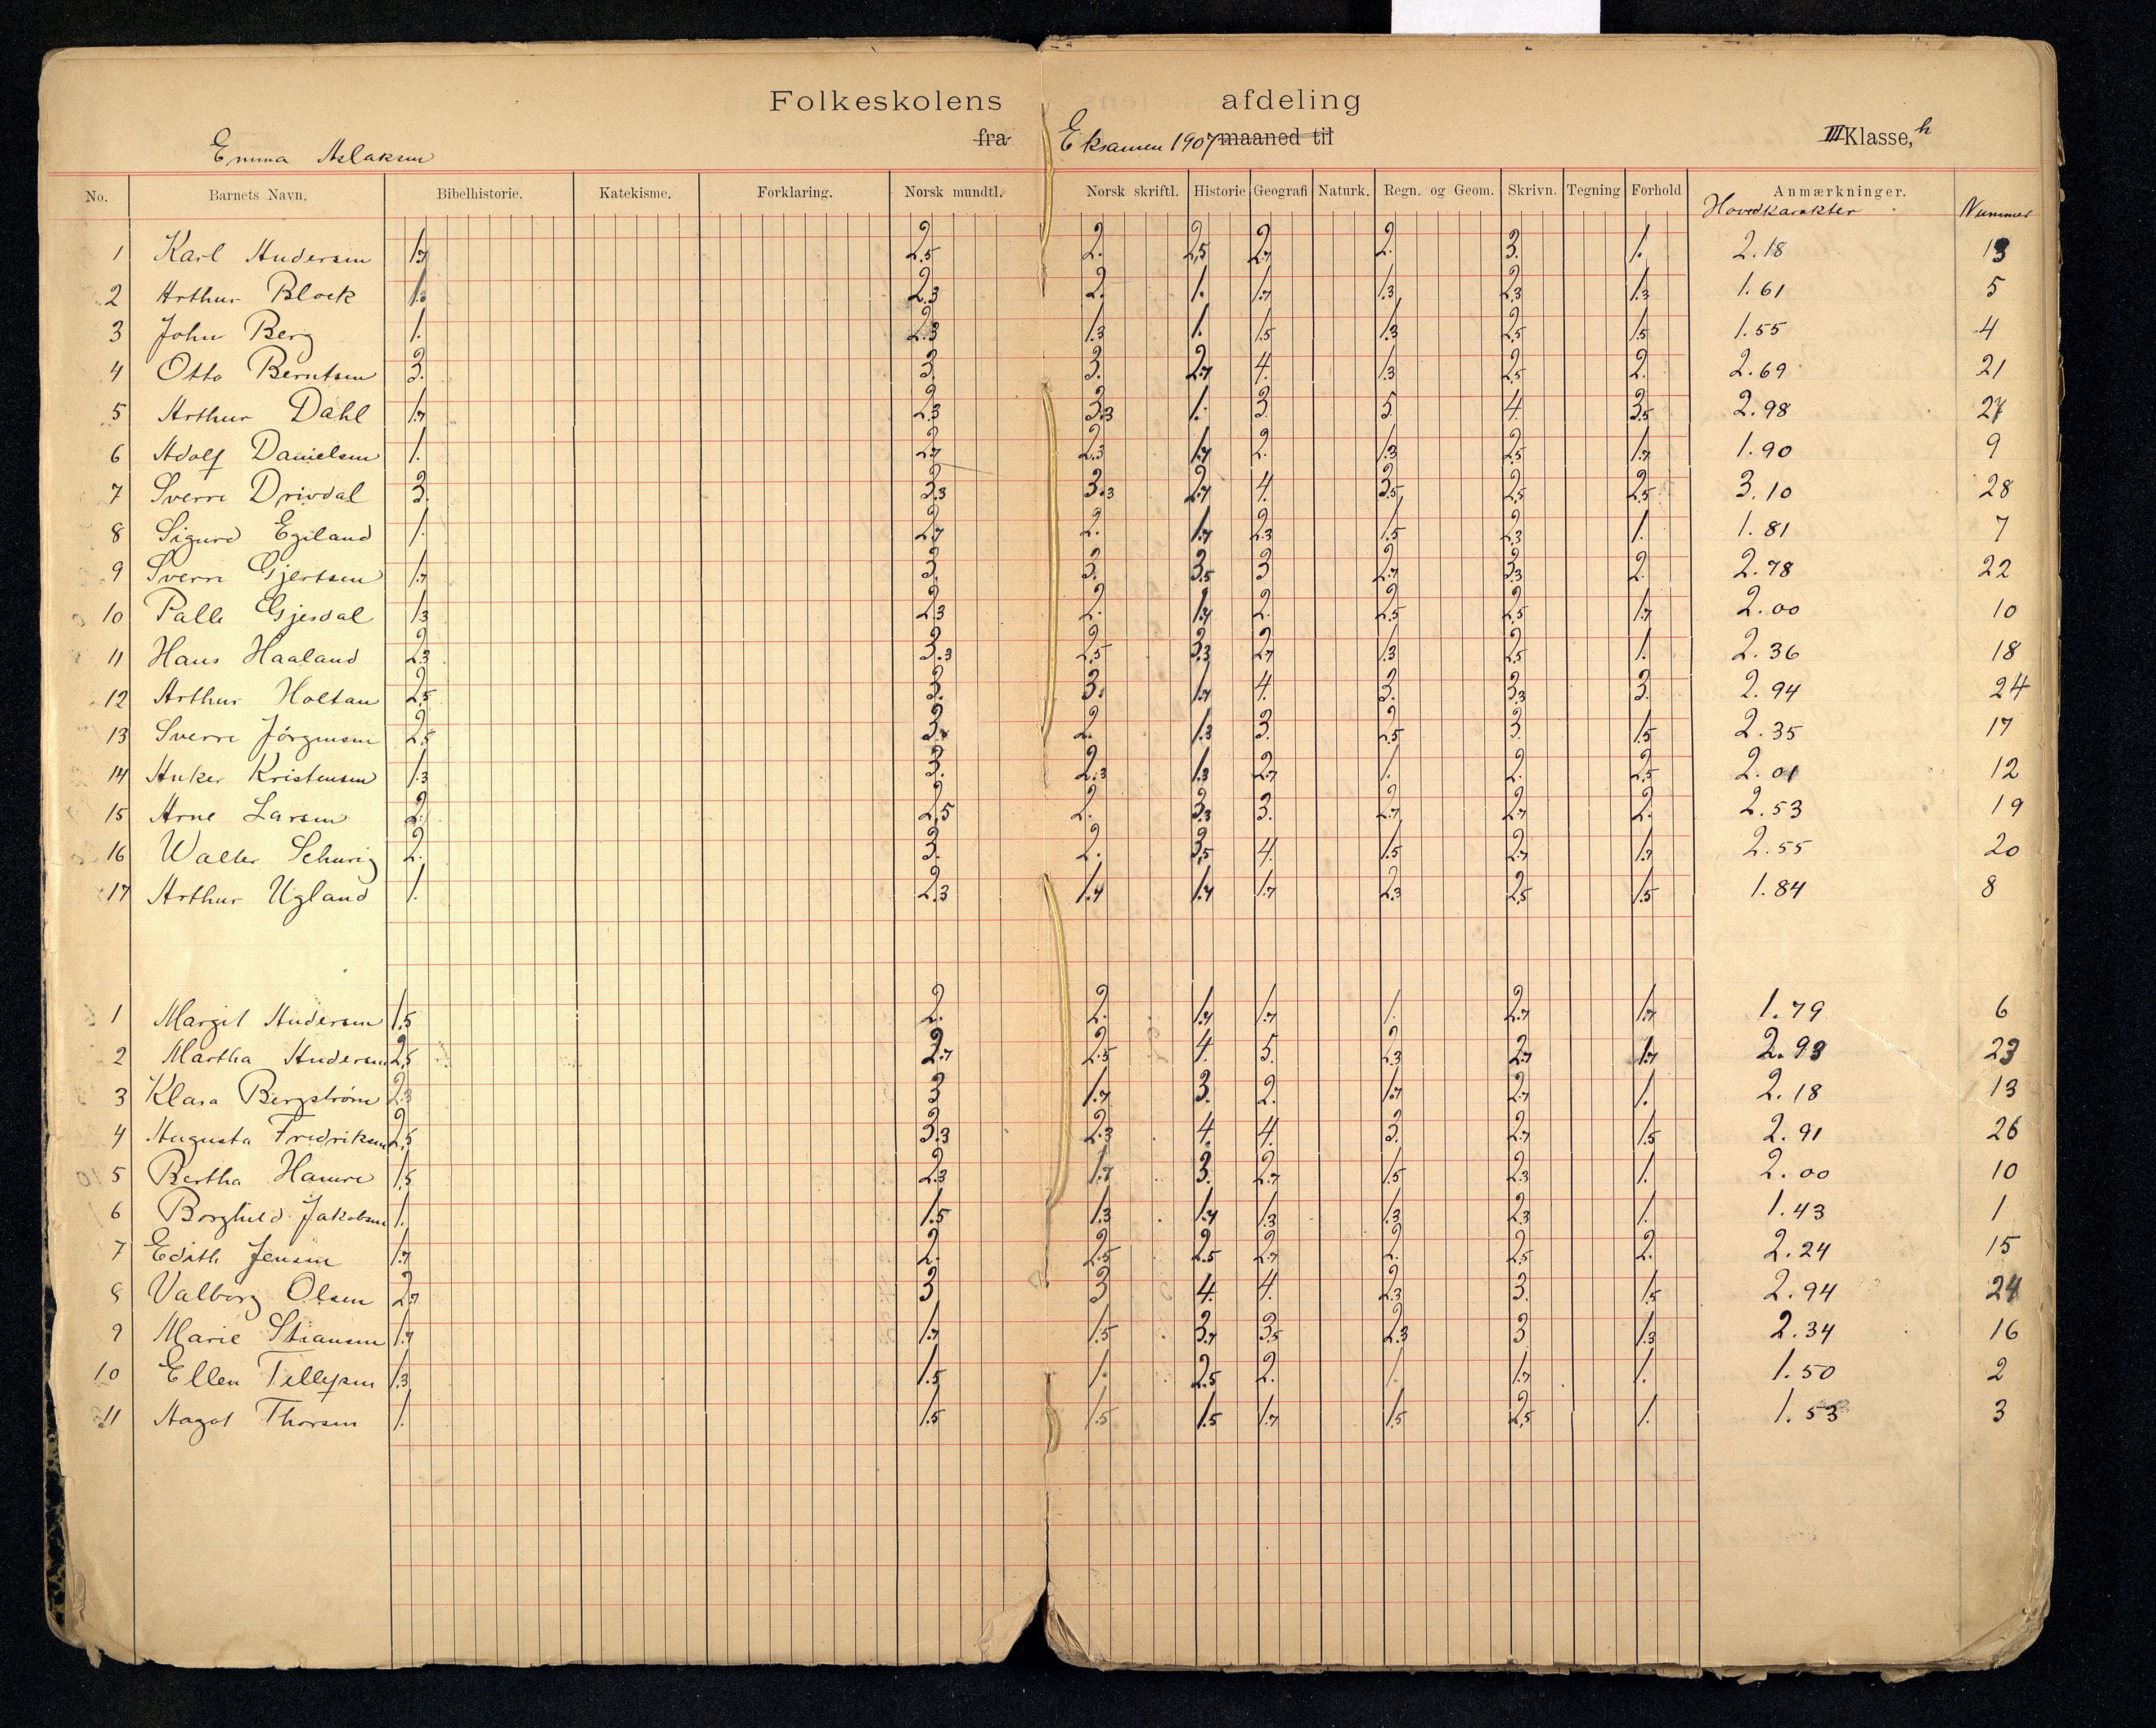 Folkeskolens afdeling
Emma Aslaksen fra Eksamen 1907 maaned til III Klasse, h
No. Barnets Navn. Bibelhistorie. Katekisme. Forklaring. Norsk mundtl. Norsk skriftl. Historie Geografi Naturk. Regn. og Geom. Skrivn. Tegning Forhold Anmærkninger.
Hovedkarakter Nummer
1 Karl Andersen 1.7 2.5 2. 2.5 2.7 2. 3. 1. 2.18 13
2 Arthur Block 1. 2.3 2. 1. 1.7 1.3 2.3 1.3 1.61 5
3 John Berg 1. 2.3 1.3 1. 1.5 1.3 2.5 1.5 1.55 4
4 Otto Berntsen 3. 3. 3. 2.7 4. 1.3 2.5 2. 2.69 21
5 Arthur Dahl 1.7 2.3 3.3 1. 3. 5. 4 3.5 2.98 27
6 Adolf Danielsen 1. 2.7 2.3 1.7 2. 1.3 2.5 1.7 1.90 9
7 Sverre Drivdal 3. 3.3 3.3 2.7 4. 3.5 2.5 2.5 3.10 28
8 Sigurd Egeland 1. 2.7 2. 1.7 2.3 1.5 2.3 1. 1.81 7
9 Sverre Gjertsen 1.7 3. 3. 3.5 3 2.7 3.3 2. 2.78 22
10 Palle Gjesdal 1.3 2.3 2. 1.7 2. 2.5 2.5 1.7 2.00 10
11 Hans Haaland 2.3 3.3 2.5 3.3 2.7 1.3 2.5 1. 2.36 18
12 Arthur Holtan 2.5 3. 3. 1.7 4. 3. 3.3 3. 2.94 24
13 Sverre Jörgensen 2.5 3. 2. 1.3 3. 2.5 3. 1.5 2.35 17
14 Anker Kristensen 1.3 3. 2.3 1.3 2.7 1. 2. 2.5 2.01 12
15 Arne Larsen 2. 2.5 2. 3.3 3. 2.7 2.7 2. 2.53 19
16 Walter Schurig 2. 3. 2. 3.5 4. 1.5 2.7 1.7 2.55 20
17 Arthur Ugland 1. 2.3 1.7 1.7 1.7 2.3 2.5 1.5 1.84 8
1 Margit Andersen 1.5 2. 2. 1.7 1.7 1. 2.7 1.7 1.79 6
2 Martha Andersen 2.5 2.7 2.5 4. 5. 2.3 2.7 1.7 2.93 23
3 Klara Bergström 2.3 3 1.7 3. 2. 1.7 2.7 1. 2.18 13
4 Augusta Fredriksen 2.5 3.3 2.3 4. 4. 3. 2.7 1.5 2.91 26
5 Bertha Hamre 1.5 2.3 1.7 3. 2.7 1.5 2.3 1. 2.00 10
6 Borghild Jakobsen 1. 1.5 1.3 1.7 1.3 1.3 2.3 1. 1.43 1
7 Edith Jensen 1.7 2. 2.5 2.5 2.7 2. 2.5 2. 2.24 15
8 Valborg Olsen 2.7 3 3 4. 4. 2.3 3. 1.5 2.94 24
9 Marie Stiansen 1.7 1.7 1.5 3.7 3.5 2.3 3 1.3 2.34 16
10 Ellen Tellefsen 1.3 1.5 1. 2.5 2. 1. 1.7 1. 1.50 2
11 Aagot Thorsen 1. 1.5 1.5 1.5 1.7 1.5 2.5 1. 1.53 3